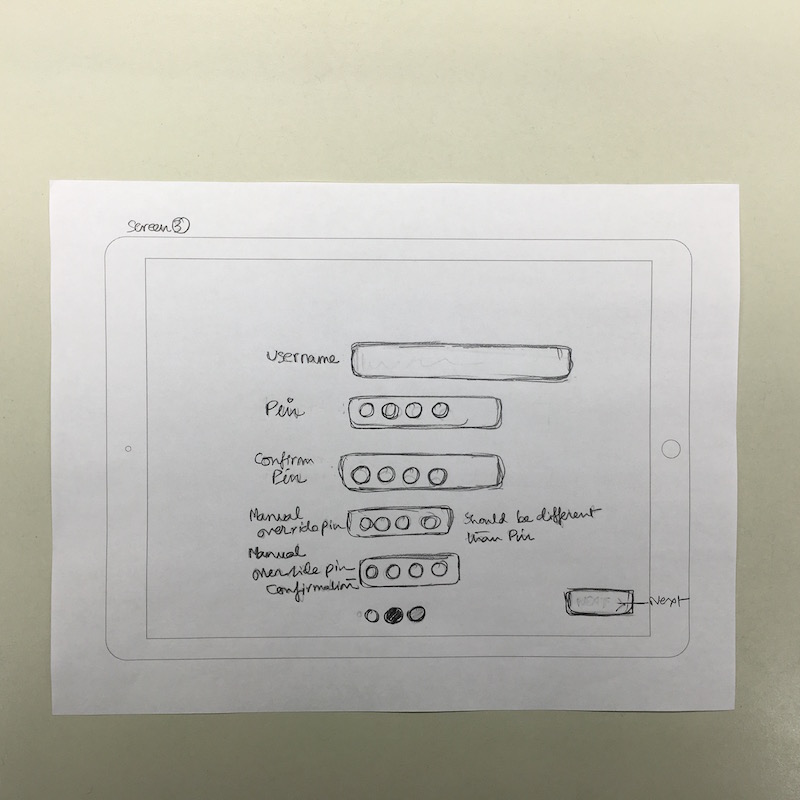 Screen 3
Username
Pin
Confirm
Pin
Manual
override pin
Should be different
than Pin
Manual
override pin
Confirmation
NEXT
Next